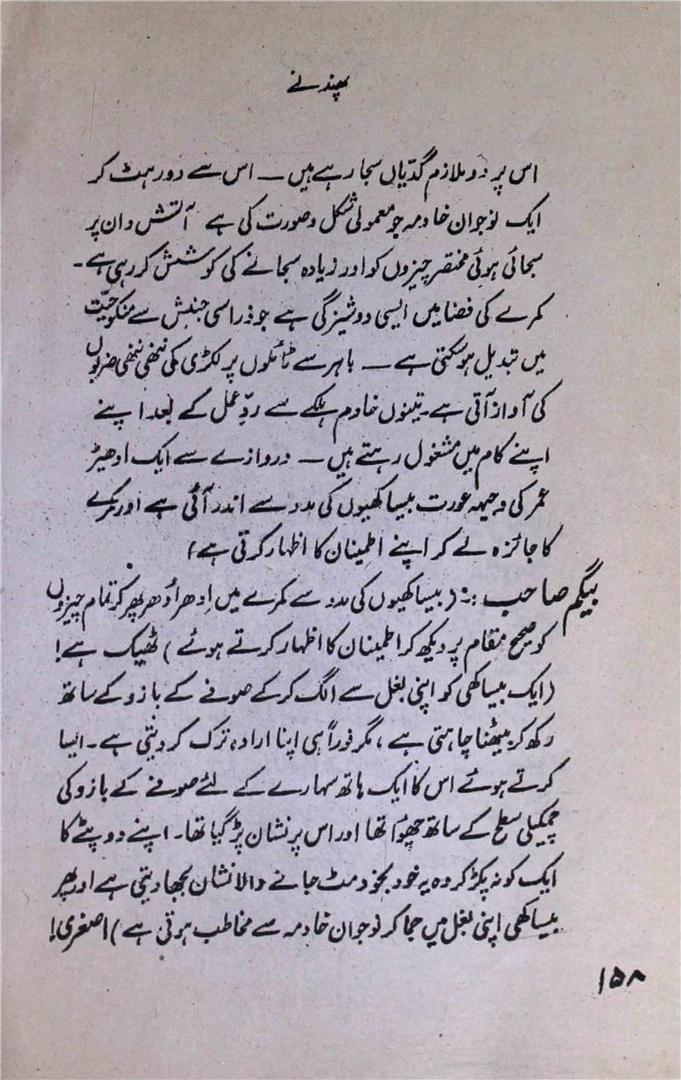 پھندنے
اس پر دو ملازم گدیاں سجا رہے ہیں — اس سے دور ہٹ کر
ایک نوجوان خادمہ جو معمولی شکل و صورت کی ہے آتش دان پر
سجائی ہوئی مختصر چیزوں کو اور زیادہ سجانے کی کوشش کر رہی ہے۔
کمرے کی فضا میں ایسی دوشیزگی ہے جو ذرا سی جنبش سے منکوحیّت
میں تبدیل ہو سکتی ہے — باہر سے ٹائلوں پر لکڑی کی ننھی ننھی ضربوں
کی آواز آتی ہے۔ تینوں خادم ہلکے سے ردِّ عمل کے بعد اپنے
اپنے کام میں مشغول رہتے ہیں — دروازے سے ایک ادھیڑ
عمر کی وجیہہ عورت بیساکھیوں کی مدد سے اندر آتی ہے اور کمرے
کا جائزہ لے کر اپنے اطمینان کا اظہار کرتی ہے)
بیگم صاحب :۔ (بیساکھیوں کی مدد سے کمرے میں اِدھر اُدھر پھر کر تمام چیزوں
کو صحیح مقام پر دیکھ کر اطمینان کا اظہار کرتے ہوئے) ٹھیک ہے!
(ایک بیساکھی کو اپنی بغل سے الگ کر کے صوفے کے بازو کے ساتھ
رکھ کر بیٹھنا چاہتی ہے، مگر فوراً ہی اپنا ارادہ ترک کر دیتی ہے۔ ایسا
کرتے ہوئے اس کا ایک ہاتھ سہارے کے لئے صوفے کے بازو کی
چمکیلی سطح کے ساتھ چھوا تھا اور اس پر نشان پڑ گیا تھا۔ اپنے دوپٹے کا
ایک کونہ پکڑ کر وہ یہ خود بخود مٹ جانے والا نشان بجھا دیتی ہے اور پھر
بیساکھی اپنی بغل میں جما کر نوجوان خادمہ سے مخاطب ہوتی ہے) اصغری!
۱۵۸